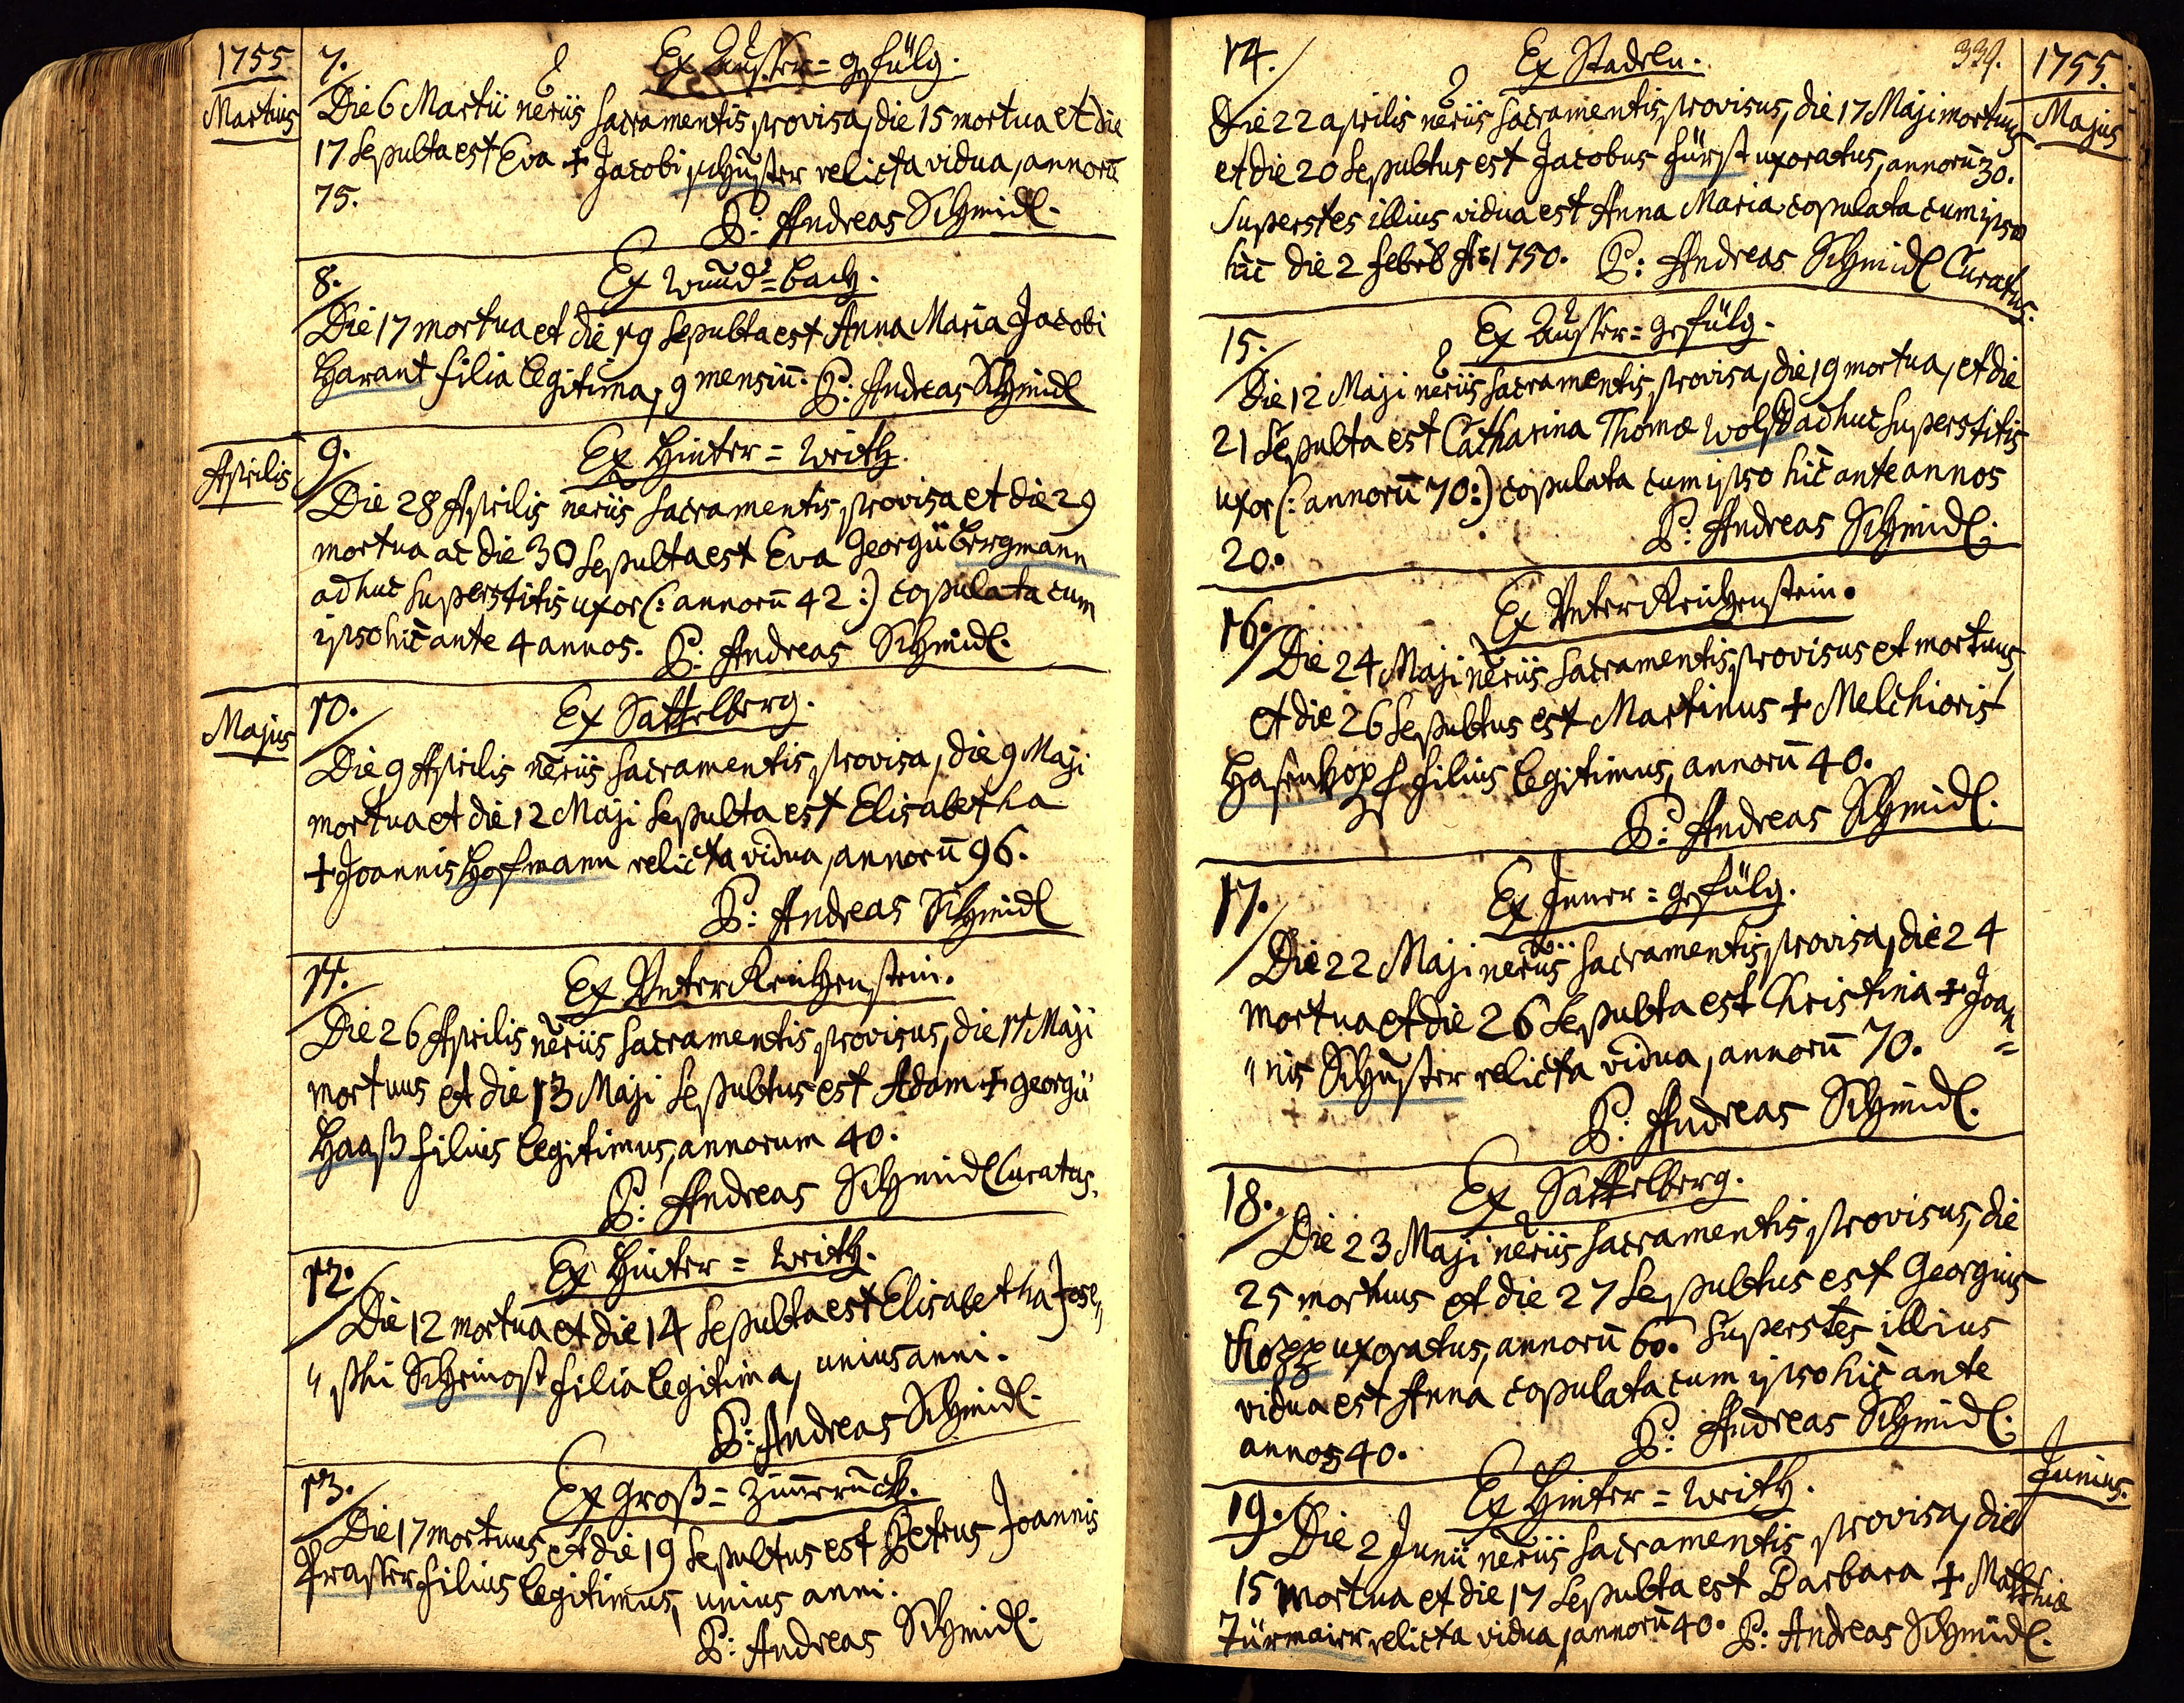 1755
Martius
7.
Ex Ausser=gefülg.
Die 6 Martii neriis sacramentis provisa, die 15 mortua et die
17 sepulta est Eva + Jacobi schuster relicta vidua, annorū
75.
P: Andreas Schmidl.
8.
Die 17 mortua et die 19 sepulta est Anna Maria Jacobi
Harant filia legitima, 9 mensiū. P: Andreas Schmidl
Aprilis
9.
Ex Hinter=Weith.
Die 28 Aprilis neriis sacramentis provisa et die 29
mortua ac die 30 sepulta est Eva Georgii bergmann
adhuc superstitis uxor (: annorū 42 :) copulata cum
ipso hic ante 4 annos. P: Andreas Schmidl.
Majus
10.
Ex Sattelberg.
Die 9 Aprilis neriis sacramentis provisa, die 9 Maji
mortua et die 12 Maji sepulta est Elisabetha
+ Joannis Hofmann relicta vidua, annorū 96.
P: Andreas Schmidl
11.
Ex Unter Reichenstein.
Die 26 Aprilis neriis sacramentis provisus, die 11 Maji
mortuus et die 13 Maji sepultus est Adam + georgii
Haaß filius legitimus, annorum 40.
P: Andreas Schmidl Curatus.
12.
Ex Hinter=Weith.
Die 12 mortua et die 14 sepulta est Elisabetha Jose„
„phi Scheinost filia legitima, unius anni.
P: Andreas Schmidl.
13.
Ex Groß=Zim̄eruck.
Die 17 mortuus et die 19 sepultus est Petrus Joannis
Prasser filius legitimus, unius anni.
P: Andreas Schmidl.
339.
1755.
Majus
14.
Ex Stadeln.
Die 22 aprilis neriis sacramentis provisus, die 17 Maji mortuus
et die 20 sepultus est Jacobus fürst uxoratus, annorū 30.
Superstes illius vidua est Anna Maria copulata cum ipso
hic die 2 febrb A: 1750. P: Andreas Schmidl Curatus.
15.
Ex Ausser=gefülg.
Die 12 Maji neriis sacramentis provisa, die 19 mortua, et die
21 sepulta est Catharina Thomæ Wolf adhuc superstitis
uxor (: annorū 70 :) copulata cum ipso hic ante annos
20.
P: Andreas Schmidl.
16.
Ex Unter Reichenstein.
Die 24 Maji neriis sacramentis provisus et mortuus,
et die 26 sepultus est Martinus + Melchioris
Hasenkopf filius legitimus, annorū 40.
P: Andreas Schmidl.
17.
Ex Inner=gefülg.
Die 22 Maji neriis sacramentis provisa, die 24
mortua et die 26 sepulta est Christina + Joan=
„nis Schuster relicta vidua, annorū 70.
P: Andreas Schmidl.
18.
Ex Sattelberg.
Die 23 Maji neriis sacramentis provisus, die
25 mortuus et die 27 sepultus est Georgius
Kopp uxoratus, annorū 60. Superstes illius
vidua est Anna copulata cum ipso hic ante
annos 40.
P: Andreas Schmidl.
Junius.
19.
Ex Hinter=Weith.
Die 2 Junii neriis sacramentis provisa, die
15 mortua et die 17 sepulta est Barbara + Matthiæ
Türmaier relicta vidua, annorū 40. P: Andreas Schmidl.